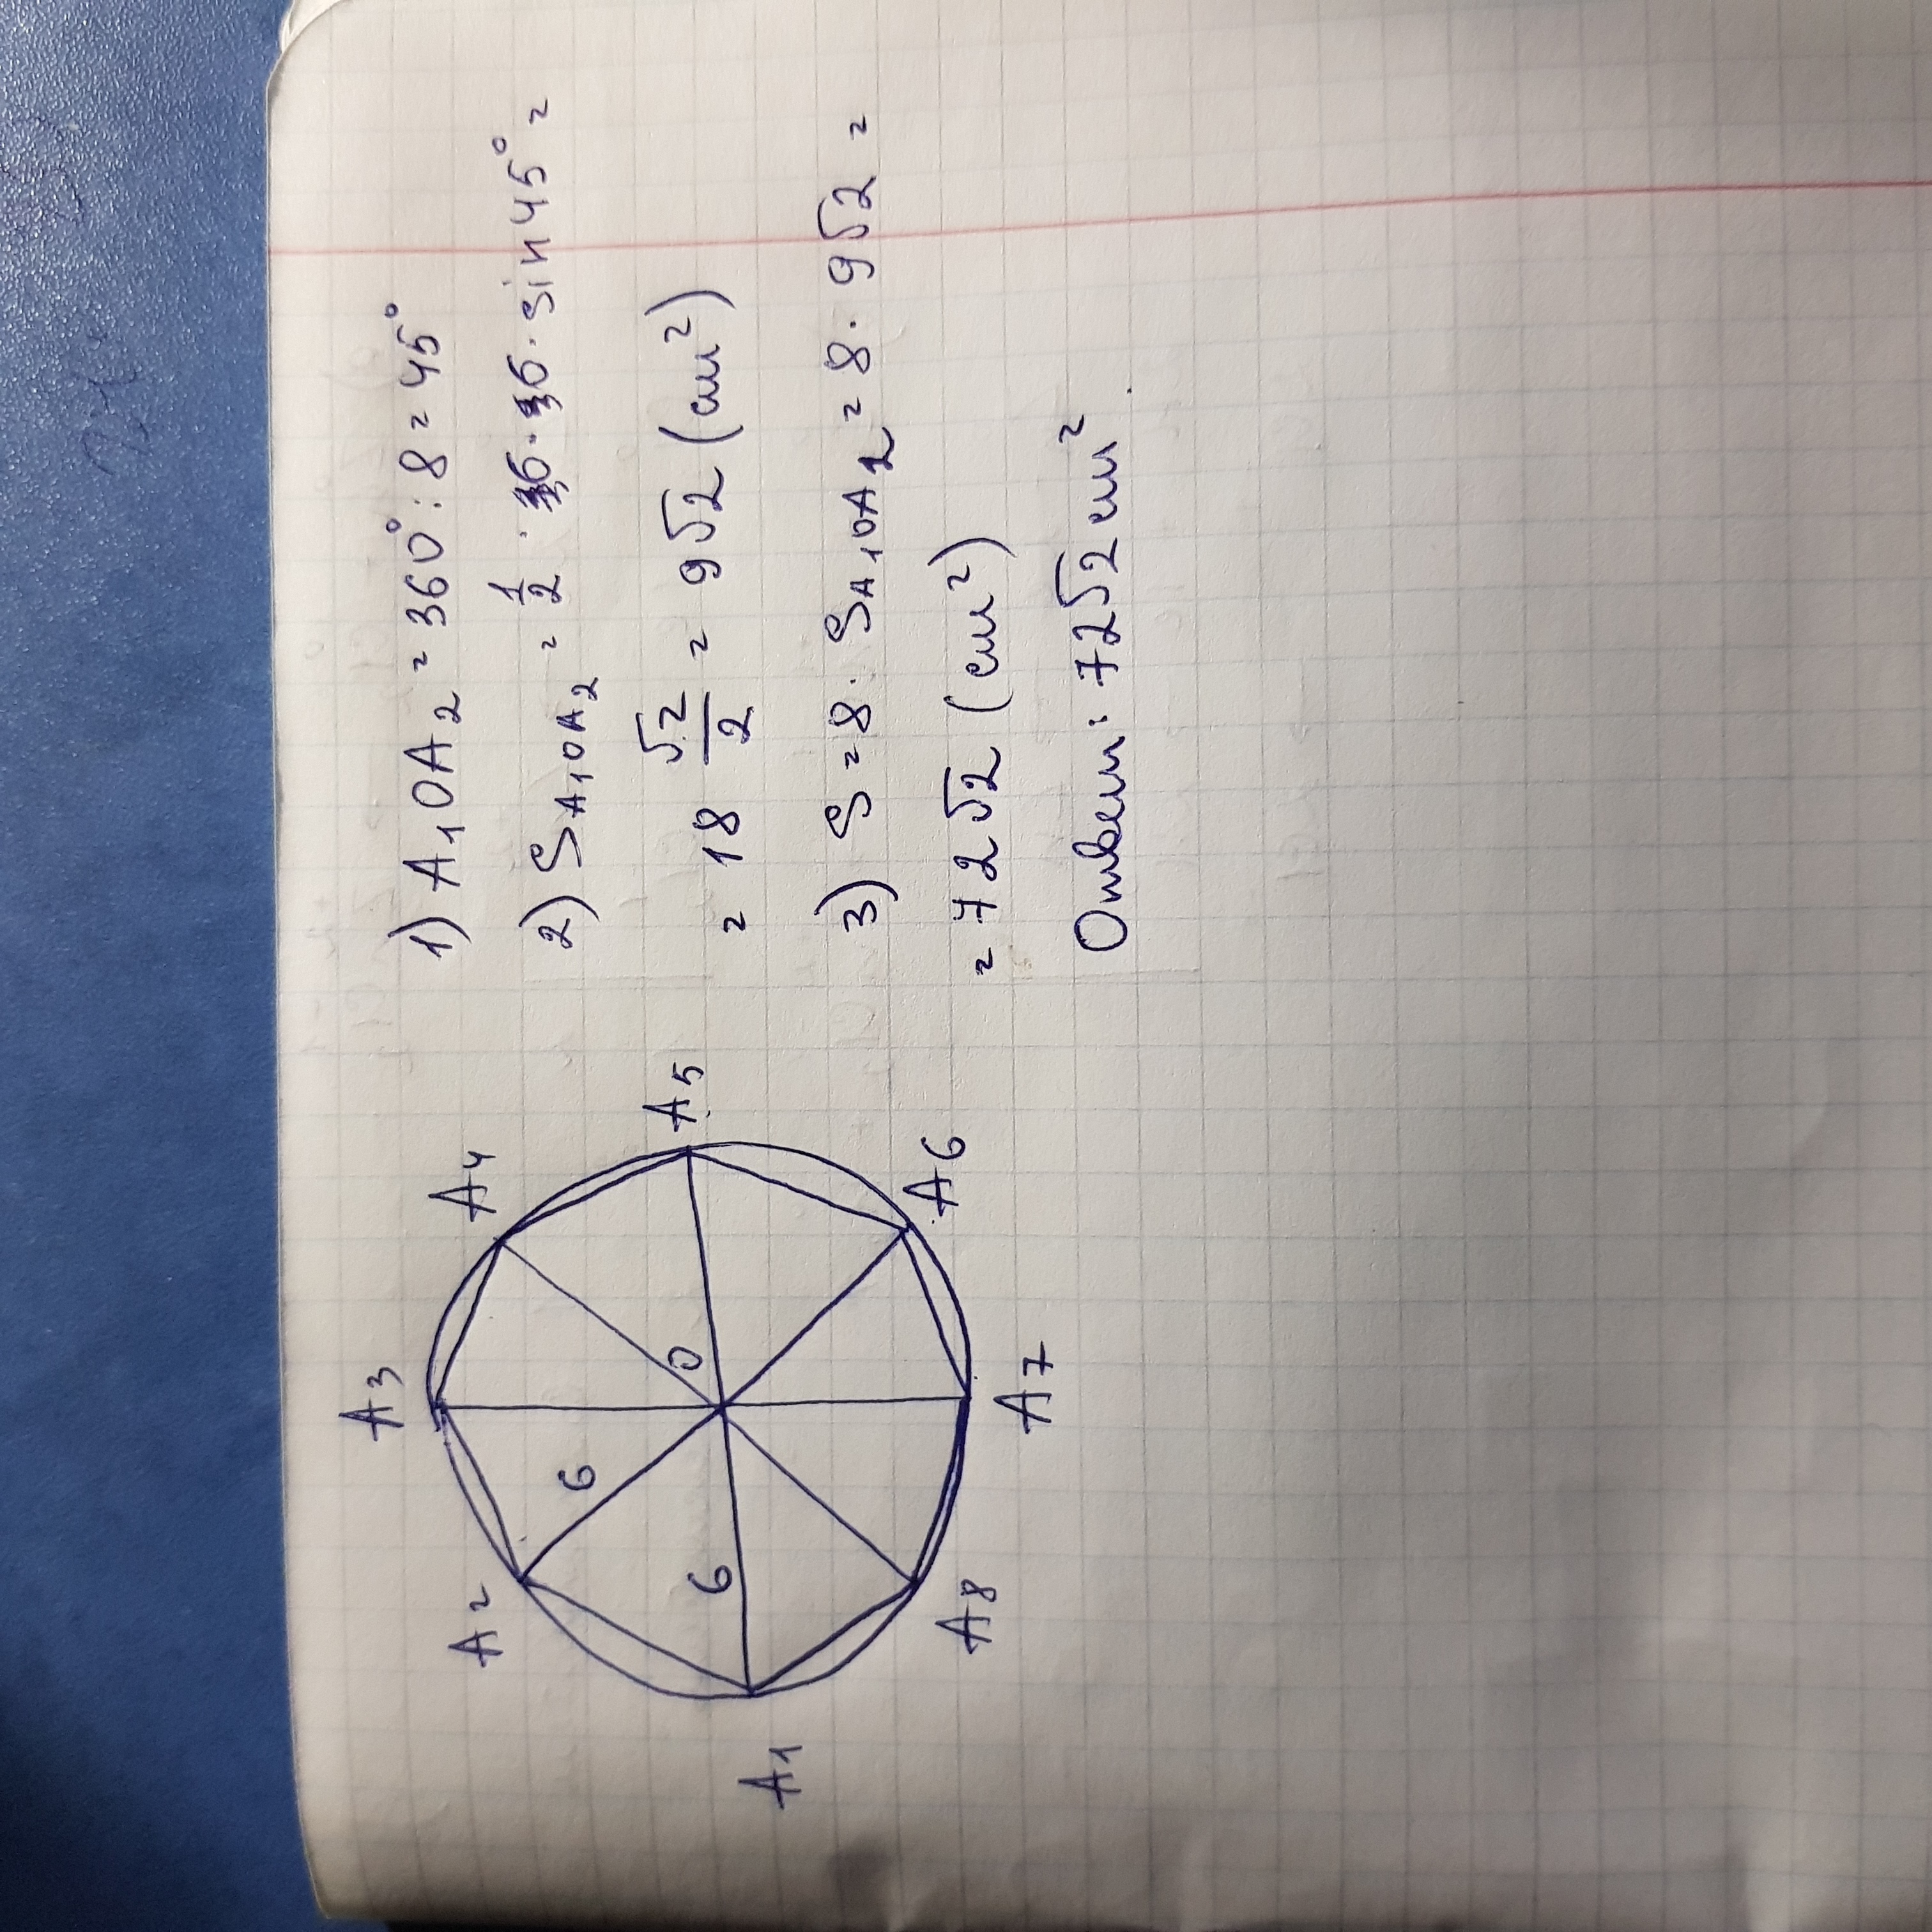 A1
A2
A3
A4
A5
A6
A7
A8
O
6
6
1) A₁OA₂ = 360° : 8 = 45°
2) S A₁OA₂ = 1/2 · 6 · 6 · sin 45° =
= 18 √2/2 = 9√2 (см²)
3) S = 8 · S A₁OA₂ = 8 · 9√2 =
= 72√2 (см²)
Ответ: 72√2 см²